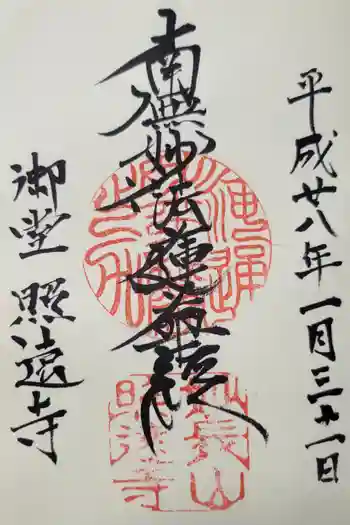 平成廿八年一月三十一日
南無妙法蓮華經
御堂 照遠寺
妙長山
照遠寺